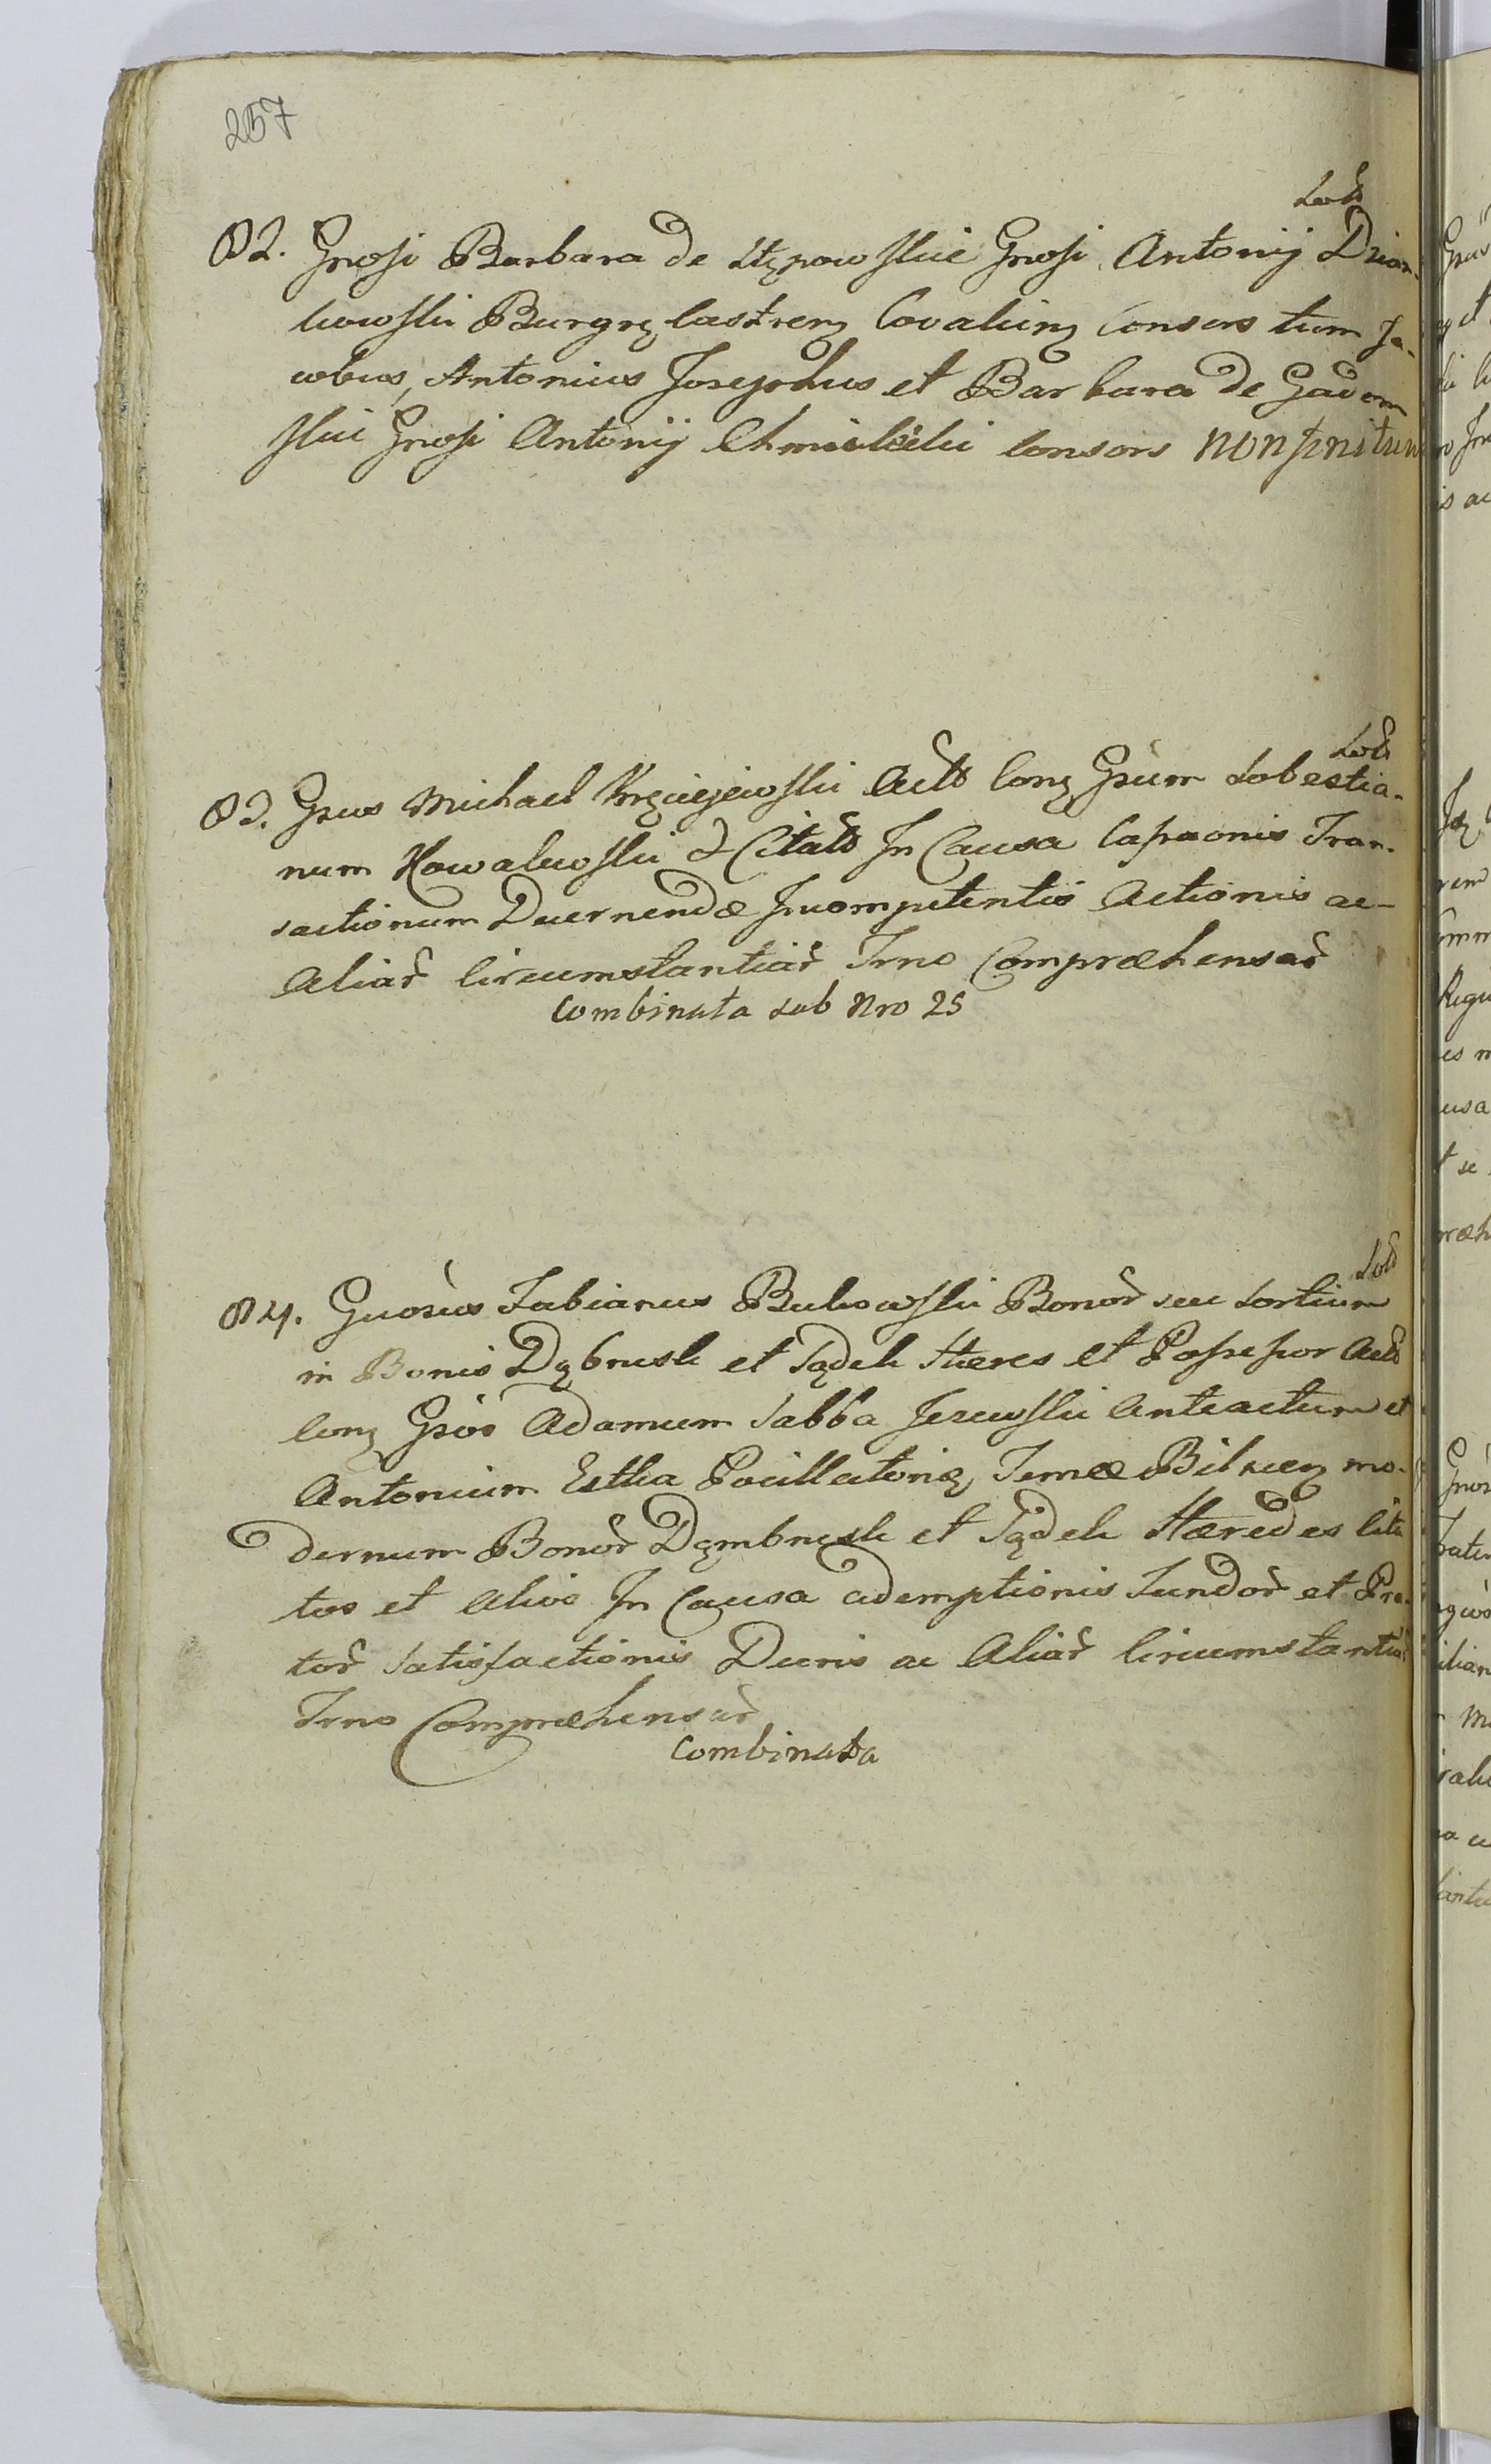 257
82. Gnosi Barbara de Stępowskie Gnosi Antonij Dziar-
kowski Burgrę Castreng Covalieng Consors tum Ja-
cobus, Antonius Josephus et Barbara de Gadom
skie Gnosi Antonij Chmielecki Consors non finitum
83. Gsus Michael Kręciejewski Actō Conȝ Gsum Sobestia-
num Kowalewski & Citatō In Causa Cassaonis Tran-
sactionum Decernendæ Incompetentis Actionis ac
Aliar Circumstantiar Trno Compræhensar
Combinata sub Nro 25
84. Gnosus Fabianus Bukowski Bonor seu Sortium
in Bonis Dąbrusk et Sądek Hæres et Possessor Actō
Conȝ Gsos Adamum Sabba Jezewski Anteactum et
Antonium Estka Pocillatorię Terræ Bilscenȝ mo-
dernum Bonor Dęmbrusk et Sądek Hæredes Cita
tos et Alios In Causa ademptionis Fundor et Pra-
tor Satisfactionis Decris ac Aliar Circumstantiar
Trno Compræhensar
Combinata